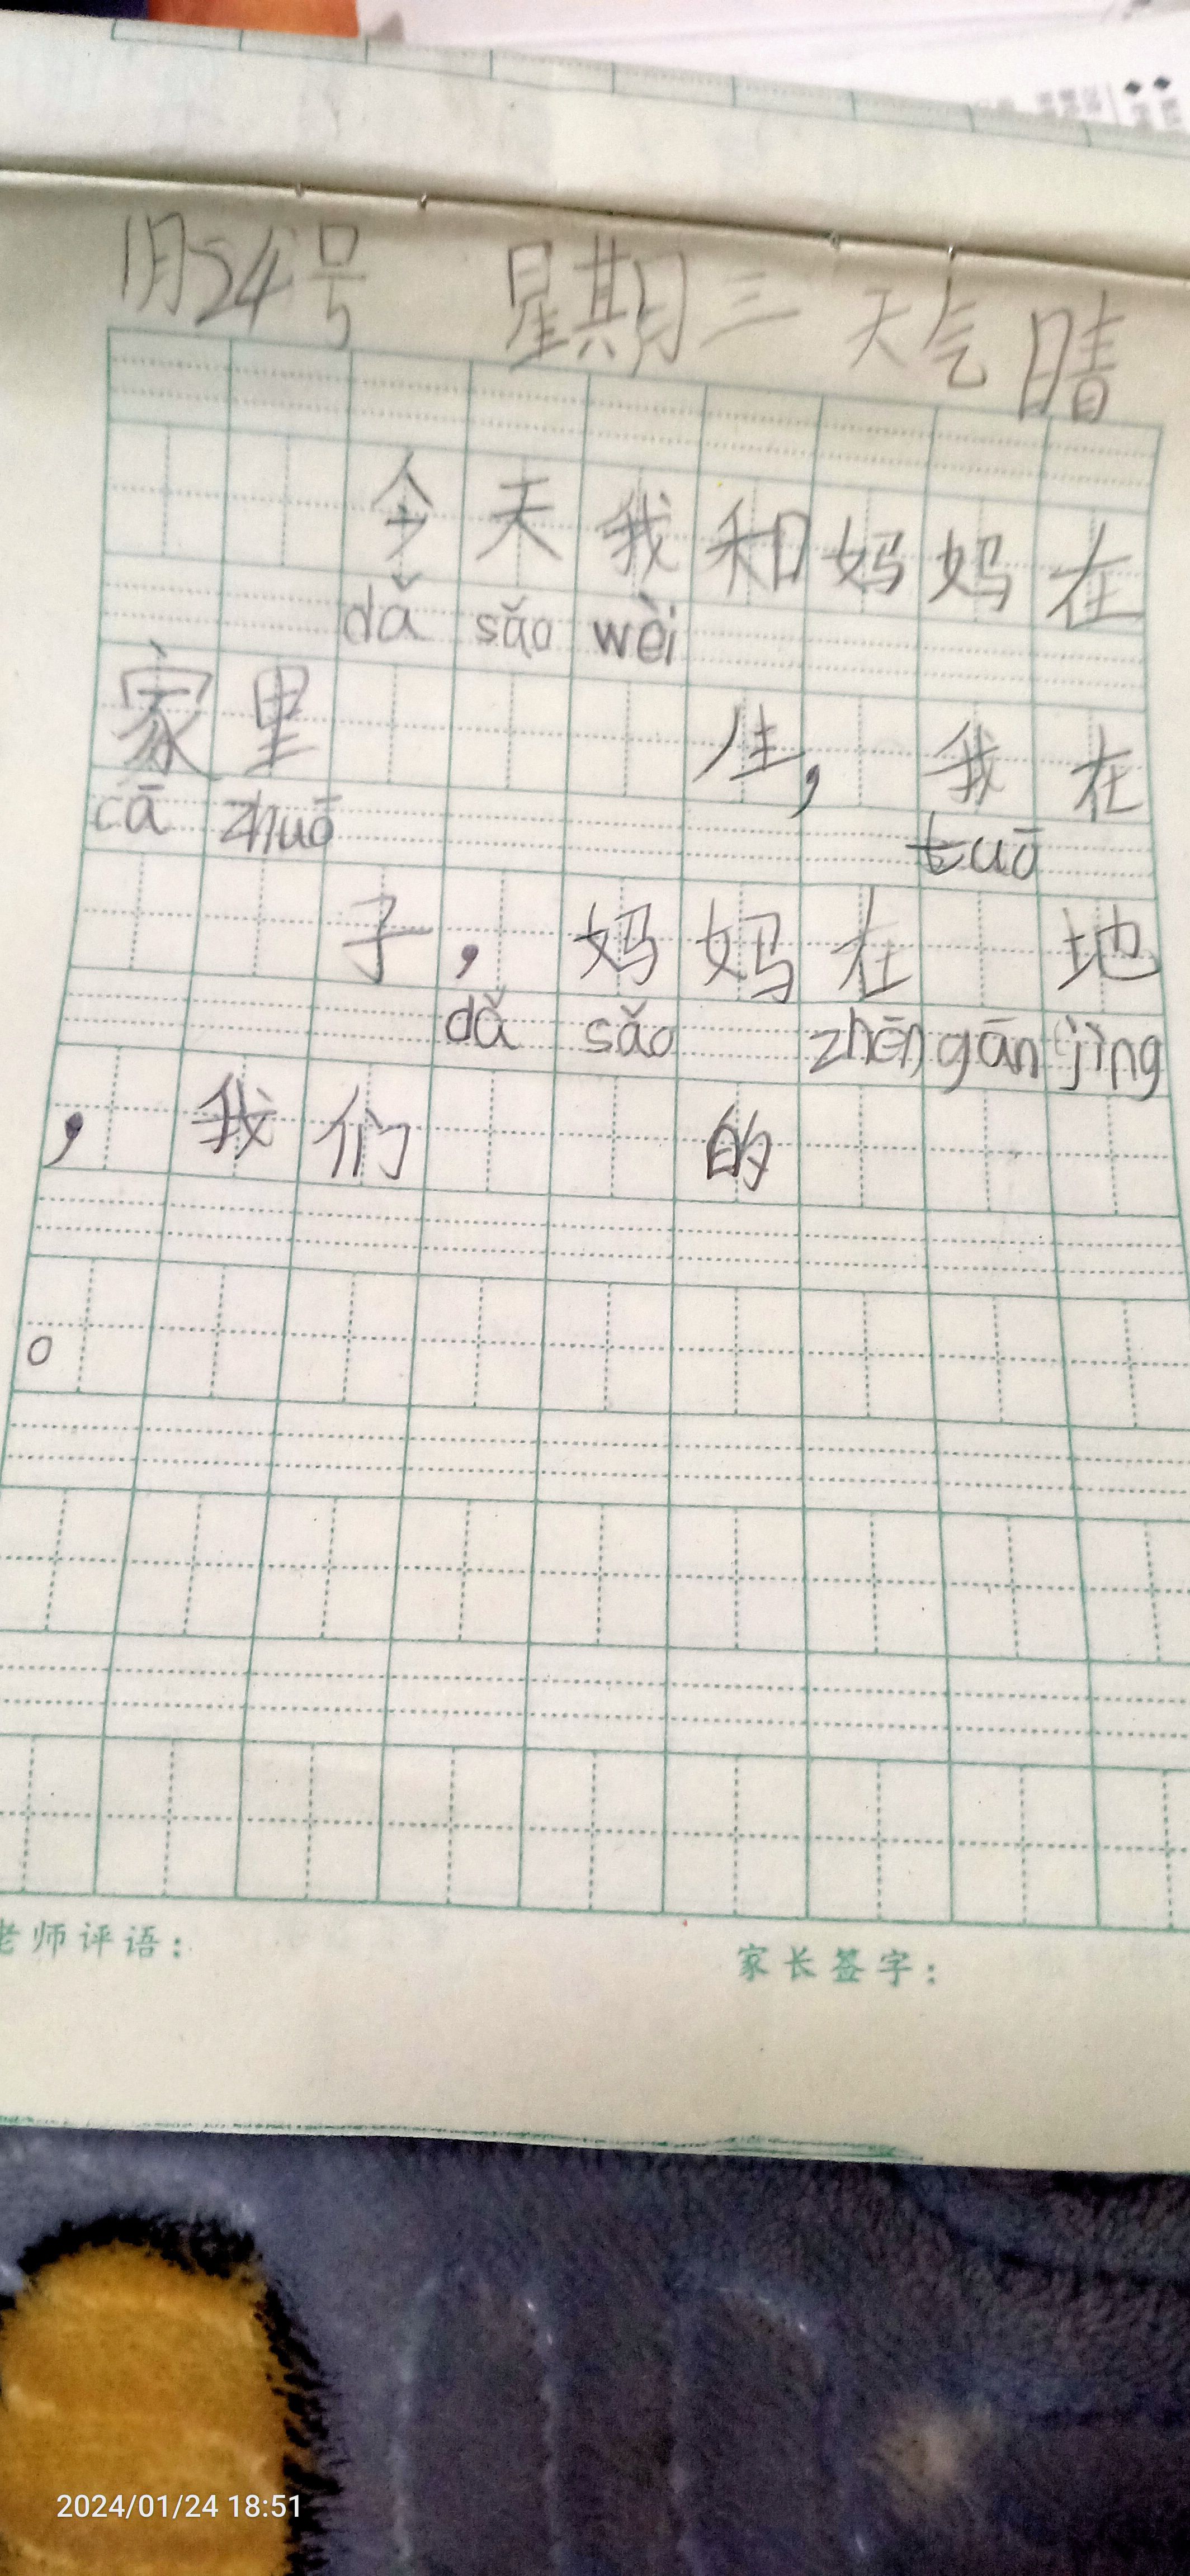 1月24号 星期三 天气晴
今天我和妈妈在
dǎ sǎo wèi
家里 生，我在
cā zhuō tuō
子，妈妈在 地
dǎ sǎo zhēn gān jìng
，我们 的
。
老师评语： 家长签字：
2024/01/24 18:51